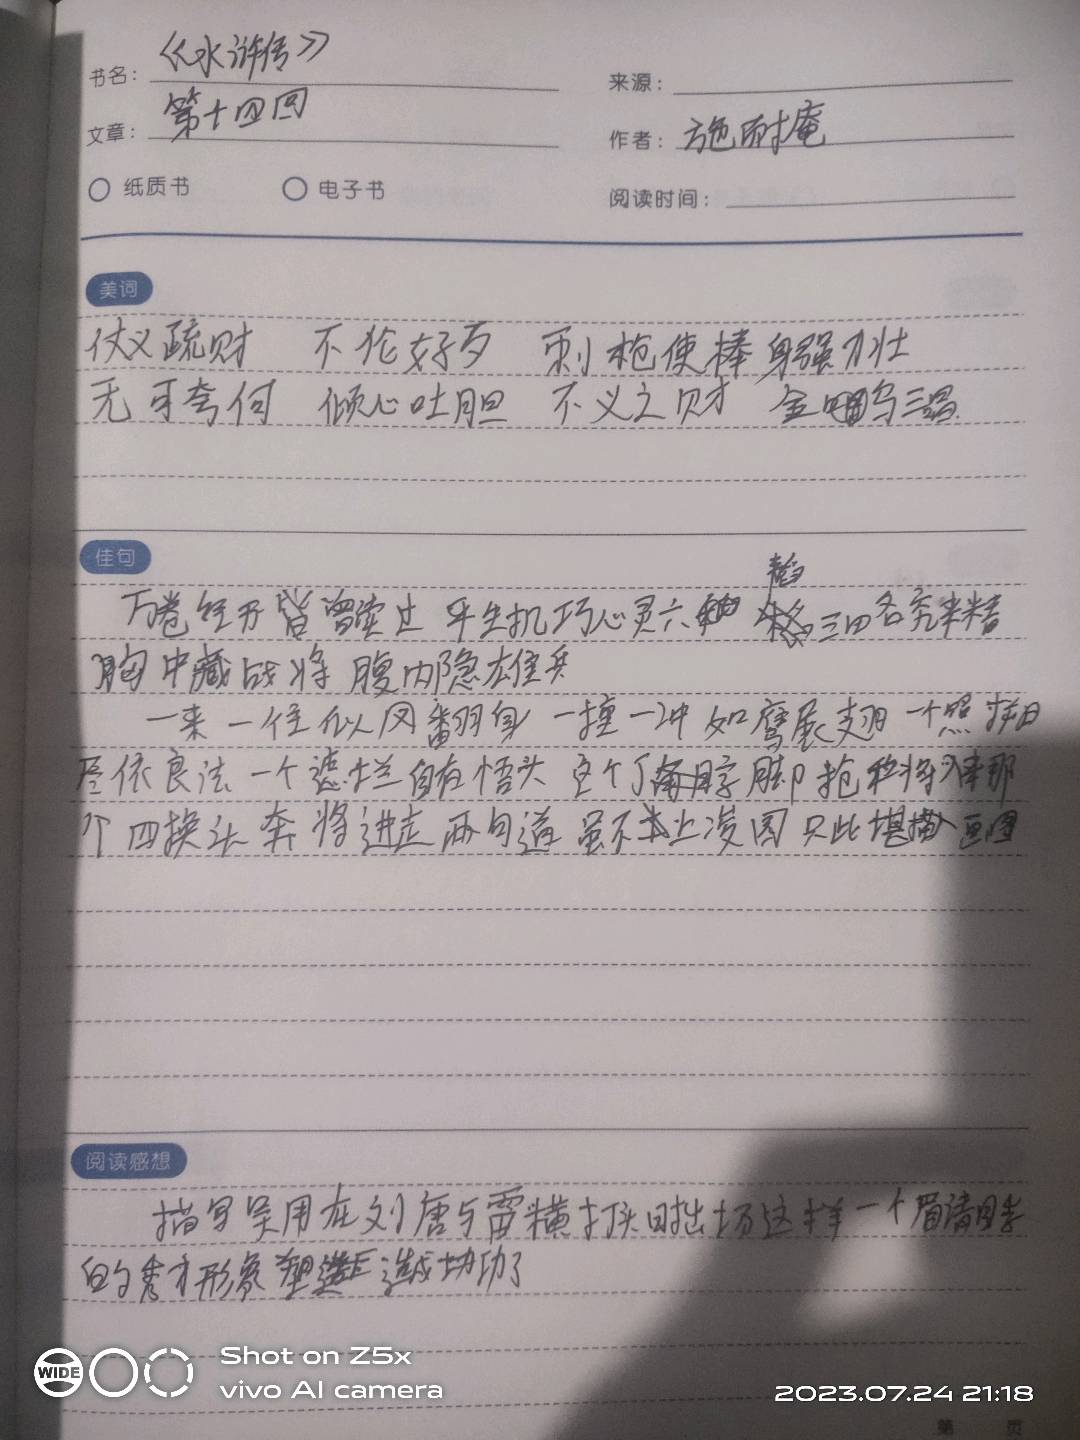 书名：《水浒传》
来源：
文章：第十四回
作者：施耐庵
纸质书 电子书
阅读时间：
美词
仗义疏财 不伦好歹 刺枪使棒 身强力壮
无可夸何 倾心吐胆 不义之财 金
佳句
万卷经 皆曾读过 平生机巧心灵六 韬 三 各究来精
胸中藏战将 腹内隐雄兵
一来一往似凤翻身 一撞一冲如鹰展翅 一个照
尽依良法 一个遮拦自有悟头 这个丁 脚 抢 将 那
个四换头 奔将进走 两句道 虽不 上凌图 只此堪描入画图
阅读感想
描写吴用在刘唐与雷横打头时出场这样一个眉清目秀
的秀才形象塑造 造成功了
WIDE
Shot on Z5x
vivo AI camera
2023.07.24 21:18
第 页